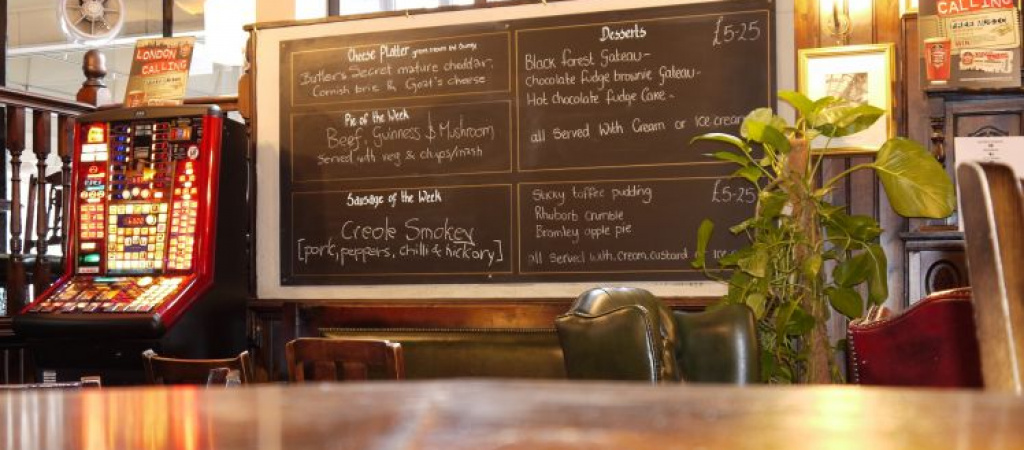 LONDON
CALLING
Cheese Platter
Butler's Secret mature cheddar,
Cornish brie & Goat's cheese
Pie of the Week
Beef, Guinness & Mushroom
Served with veg & chips/mash
Sausage of the Week
Creole Smokey
[pork, peppers, chilli & hickory]
Desserts £5-25
Black forest Gateau-
chocolate fudge brownie Gateau-
Hot chocolate fudge Cake-
all Served With Cream or Ice cream
Sticky toffee pudding £5-25
Rhubarb crumble
Bramley apple pie
all served with, cream, custard
CALLING